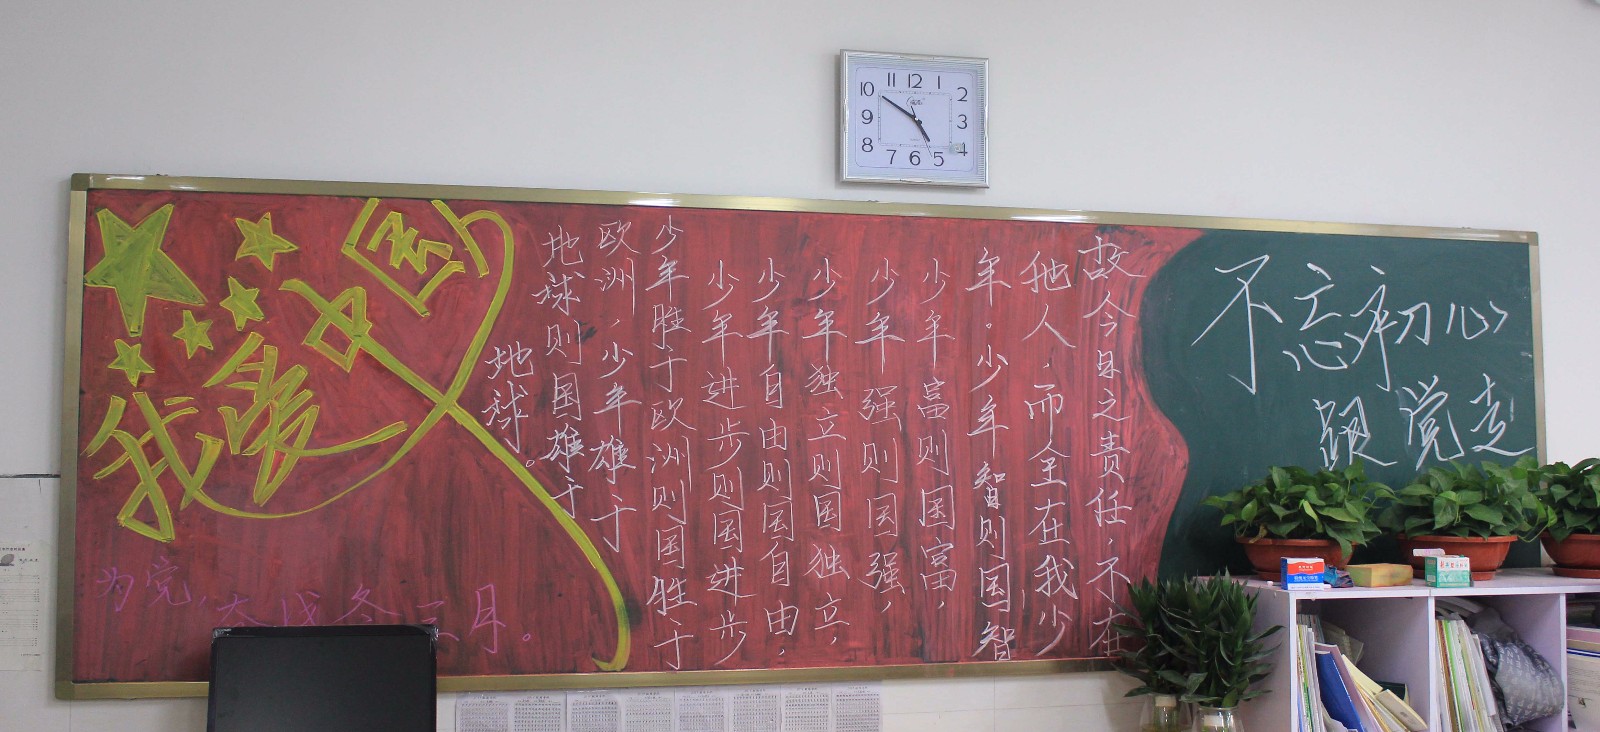 11 12 1
10 2
9 3
8 4
7 6 5
我爱中国
故今日之责任，不在
他人，而全在我少
年。少年智则国智
少年富则国富，
少年强则国强，
少年独立则国独立，
少年自由则国自由，
少年进步则国进步
少年胜于欧洲则国胜于
欧洲，少年雄于
地球则国雄于
地球。
不忘初心
跟党走
为党，奋战冬三月。